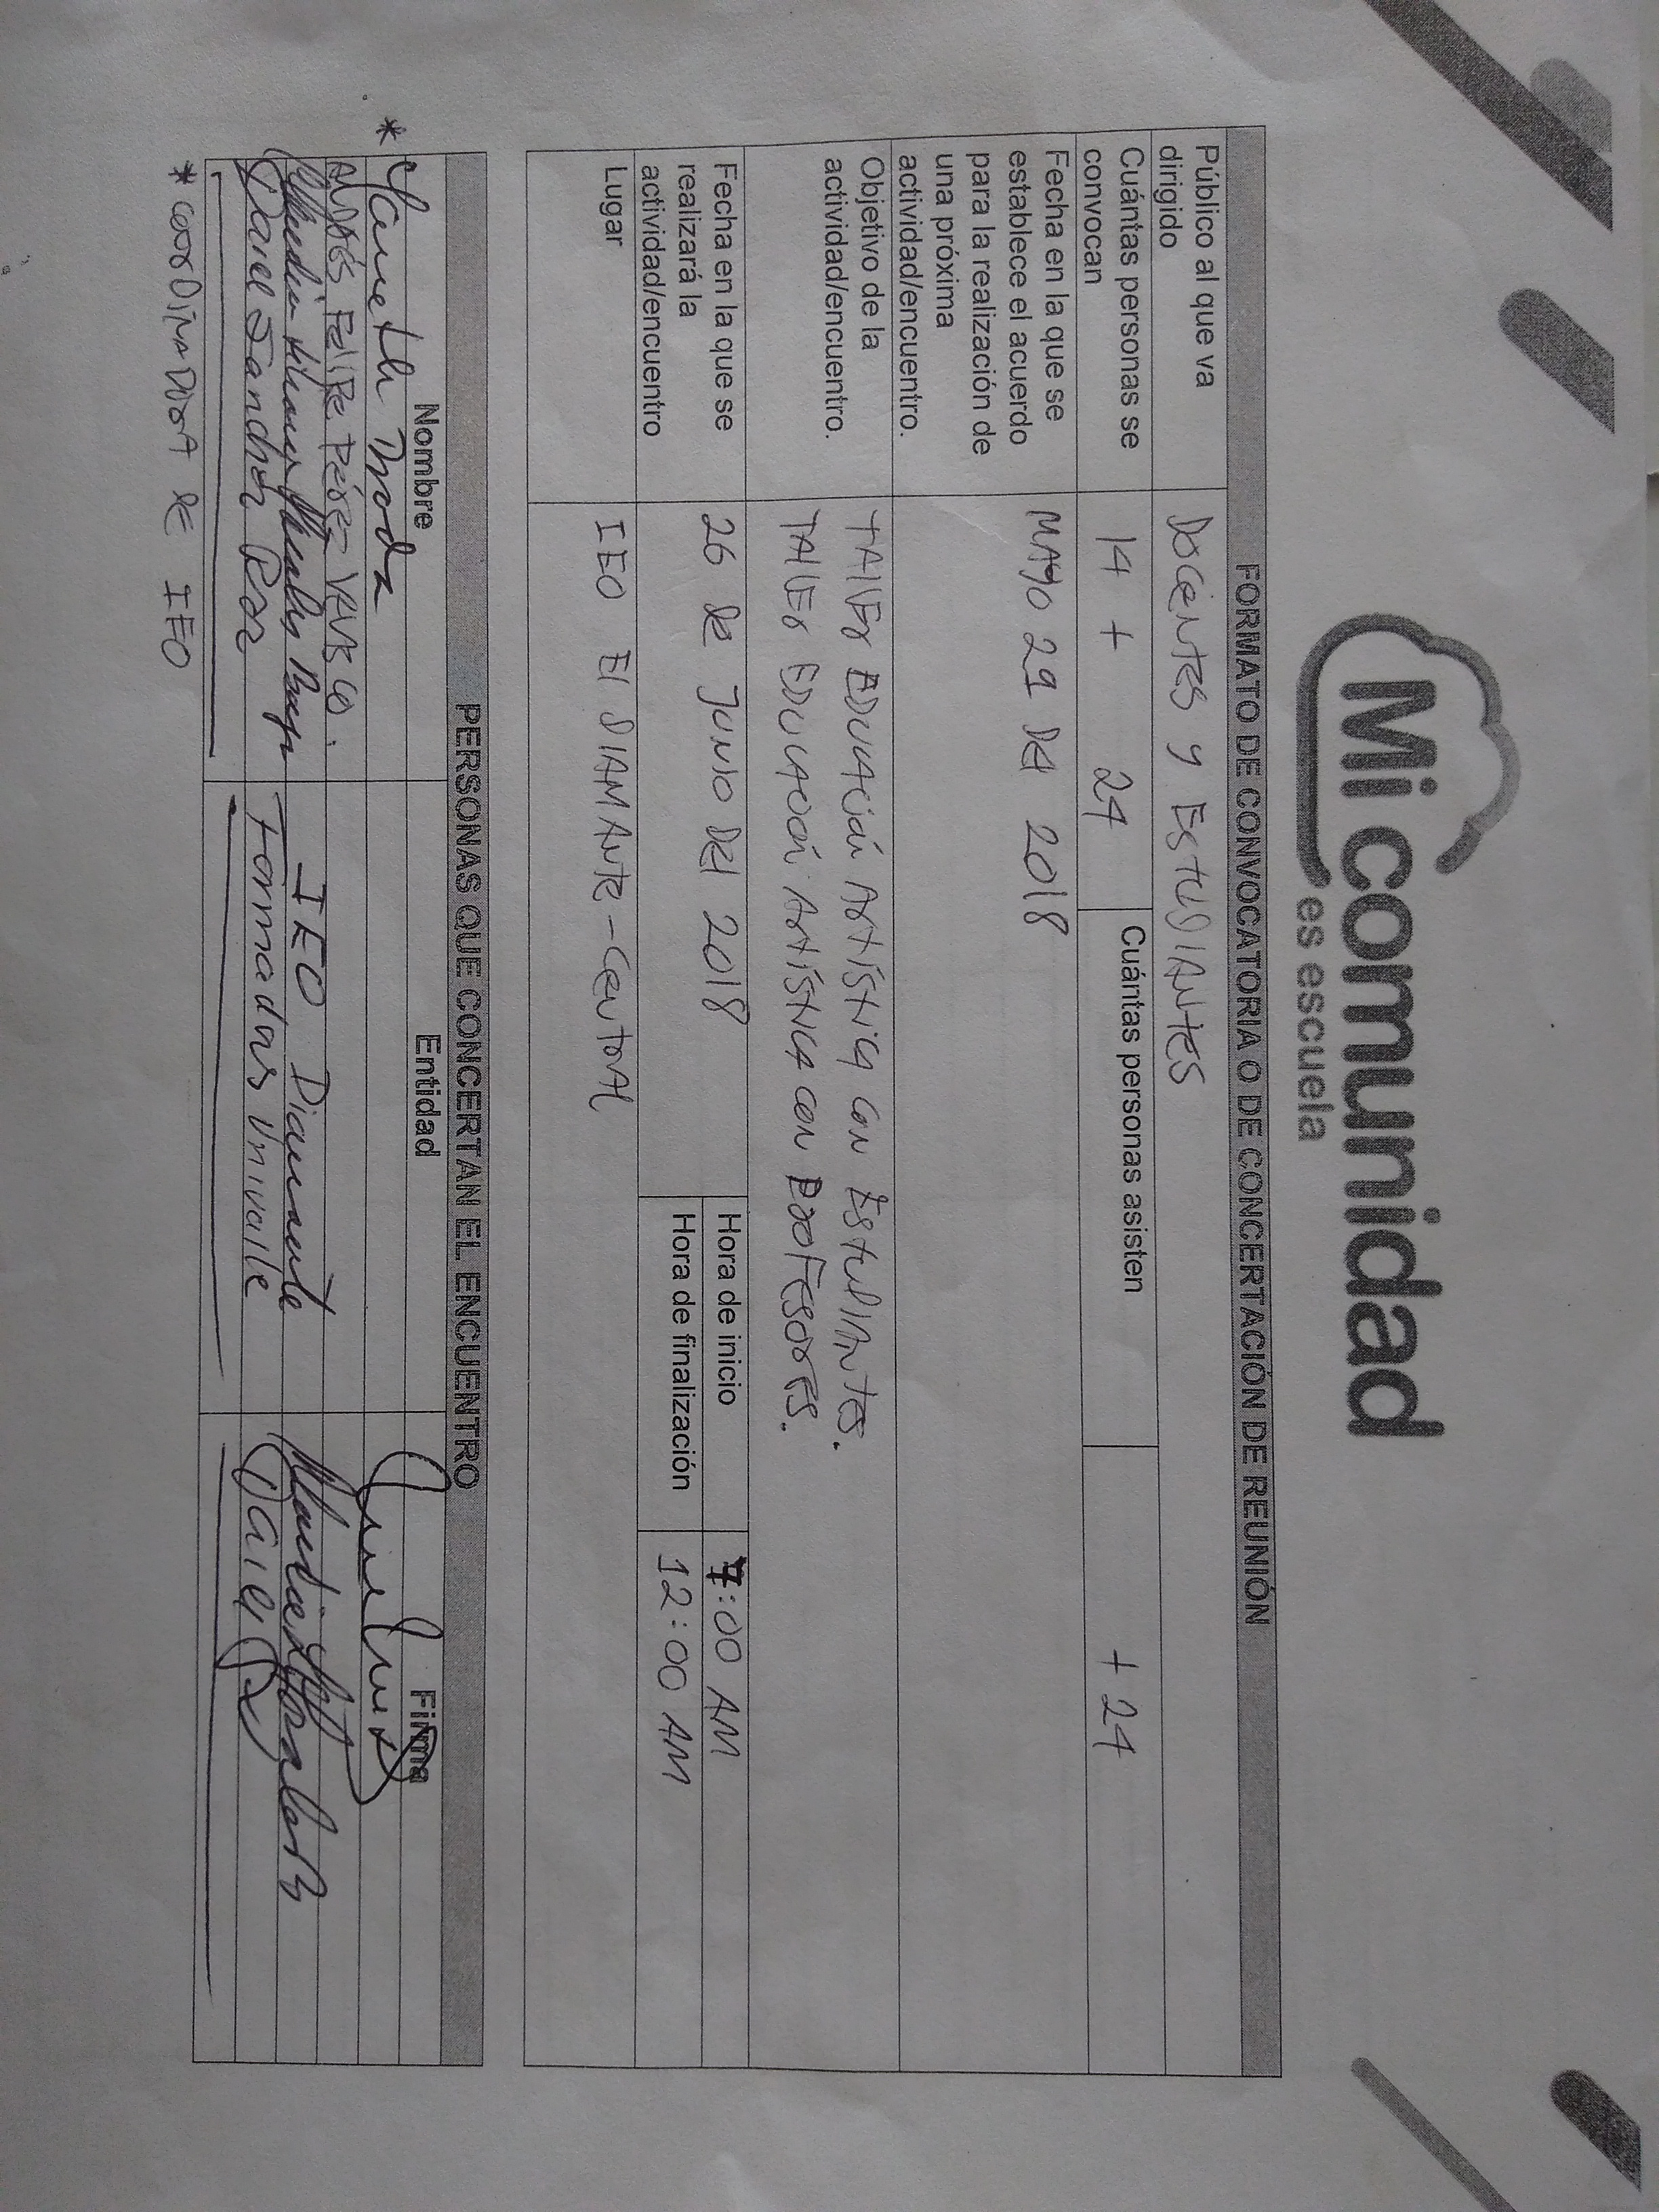 Mi comunidad
es escuela
FORMATO DE CONVOCATORIA O DE CONCERTACIÓN DE REUNIÓN
Público al que va
dirigido
DOCENTES y ESTUDIANTES
Cuántas personas se
convocan
14 + 24
Cuántas personas asisten
+ 24
Fecha en la que se
establece el acuerdo
para la realización de
una próxima
actividad/encuentro.
MAYO 29 DEL 2018
Objetivo de la
actividad/encuentro.
TALLER EDUCACIÓN ARTÍSTICA CON ESTUDIANTES.
TALLER EDUCACIÓN ARTÍSTICA CON PROFESORES.
Fecha en la que se
realizará la
actividad/encuentro
26 DE JUNIO DEL 2018
Hora de inicio
7:00 AM
Hora de finalización
12:00 AM
Lugar
IEO El DIAMANTE - CENTRAL
PERSONAS QUE CONCERTAN EL ENCUENTRO
Nombre Entidad Firma
* Yaneth
ANDRÉS FELIPE PÉREZ
Claudia Morales IEO Diamante
Sanchez Formadores Univalle
* COORDINADORA DE IEO